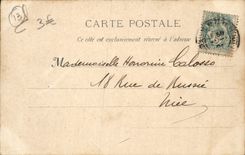 13
3€
CARTE POSTALE
Ce côté est exclusivement réservé à l'adresse
Mademoiselle Honorine Calosso
18 Rue de Russie
Nice